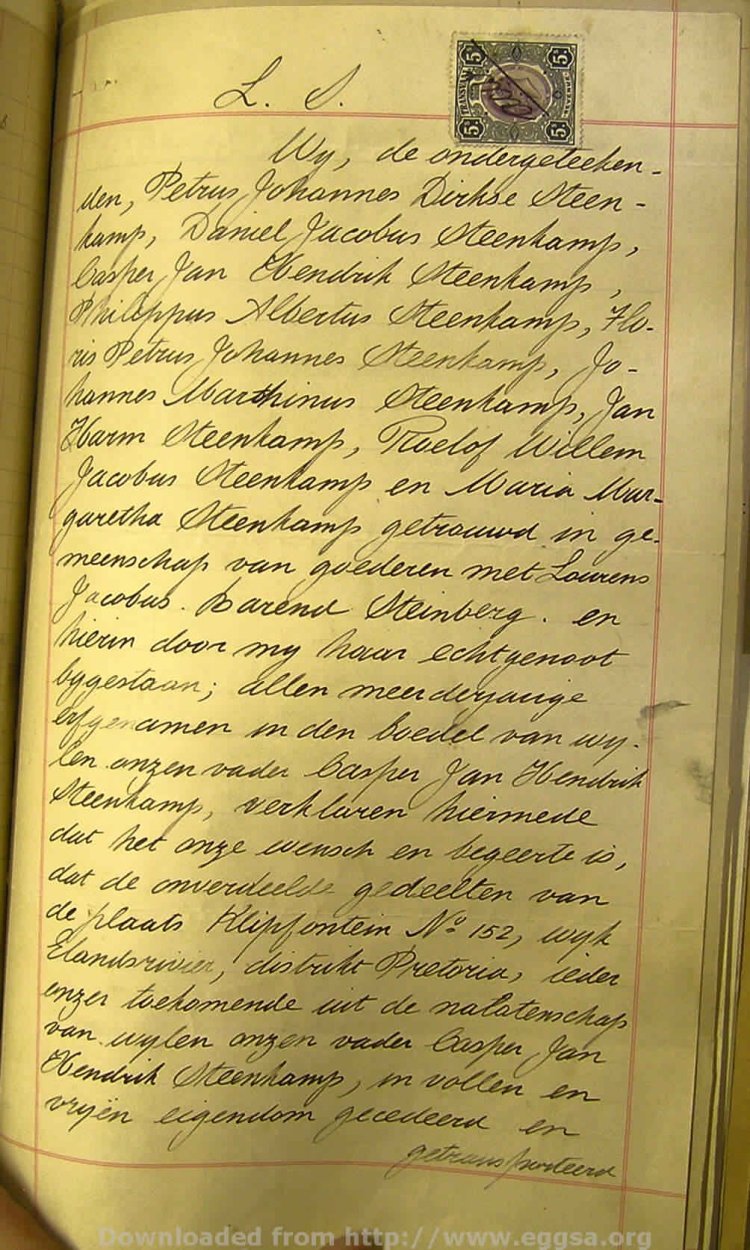 L. S.
5/ 5/
TRANSVAAL
5/ 5/
Wy, de ondergeteeken-
den, Petrus Johannes Dirkse Steen-
kamp, Daniel Jacobus Steenkamp,
Casper Jan Hendrik Steenkamp,
Philippus Albertus Steenkamp, Flo-
ris Petrus Johannes Steenkamp, Jo-
hannes Marthinus Steenkamp, Jan
Harm Steenkamp, Roelof Willem
Jacobus Steenkamp en Maria Mar-
garetha Steenkamp getrouwd in ge-
meenschap van goederen met Lourens
Jacobus Barend Steinberg. en
hierin door my haar echtgenoot
bygestaan; allen meerderjarige
erfgenamen in den boedel van wy-
len onzen vader Casper Jan Hendrik
Steenkamp, verklaren hiermede
dat het onze wensch en begeerte is,
dat de onverdeelde gedeelten van
de plaats Klipfontein No 152, wyk
Elandsrivier, distrikt Pretoria, ieder
onzer toekomende uit de nalatenschap
van wylen onzen vader Casper Jan
Hendrik Steenkamp, in vollen en
vryën eigendom gecedeerd en
getransporteerd
Downloaded from http://www.eggsa.org